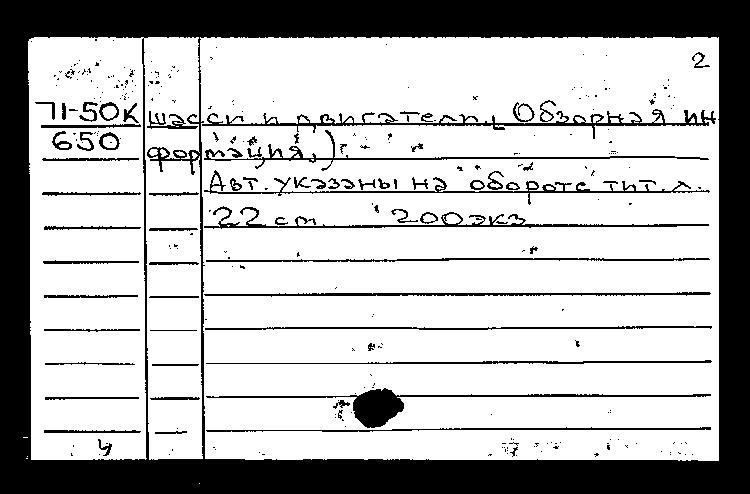 2
71-50к шасси и двигатели. Обзорная ин
650 формация.)
Авт. указаны на обороте тит. л.
22 cm. 200 экз
4